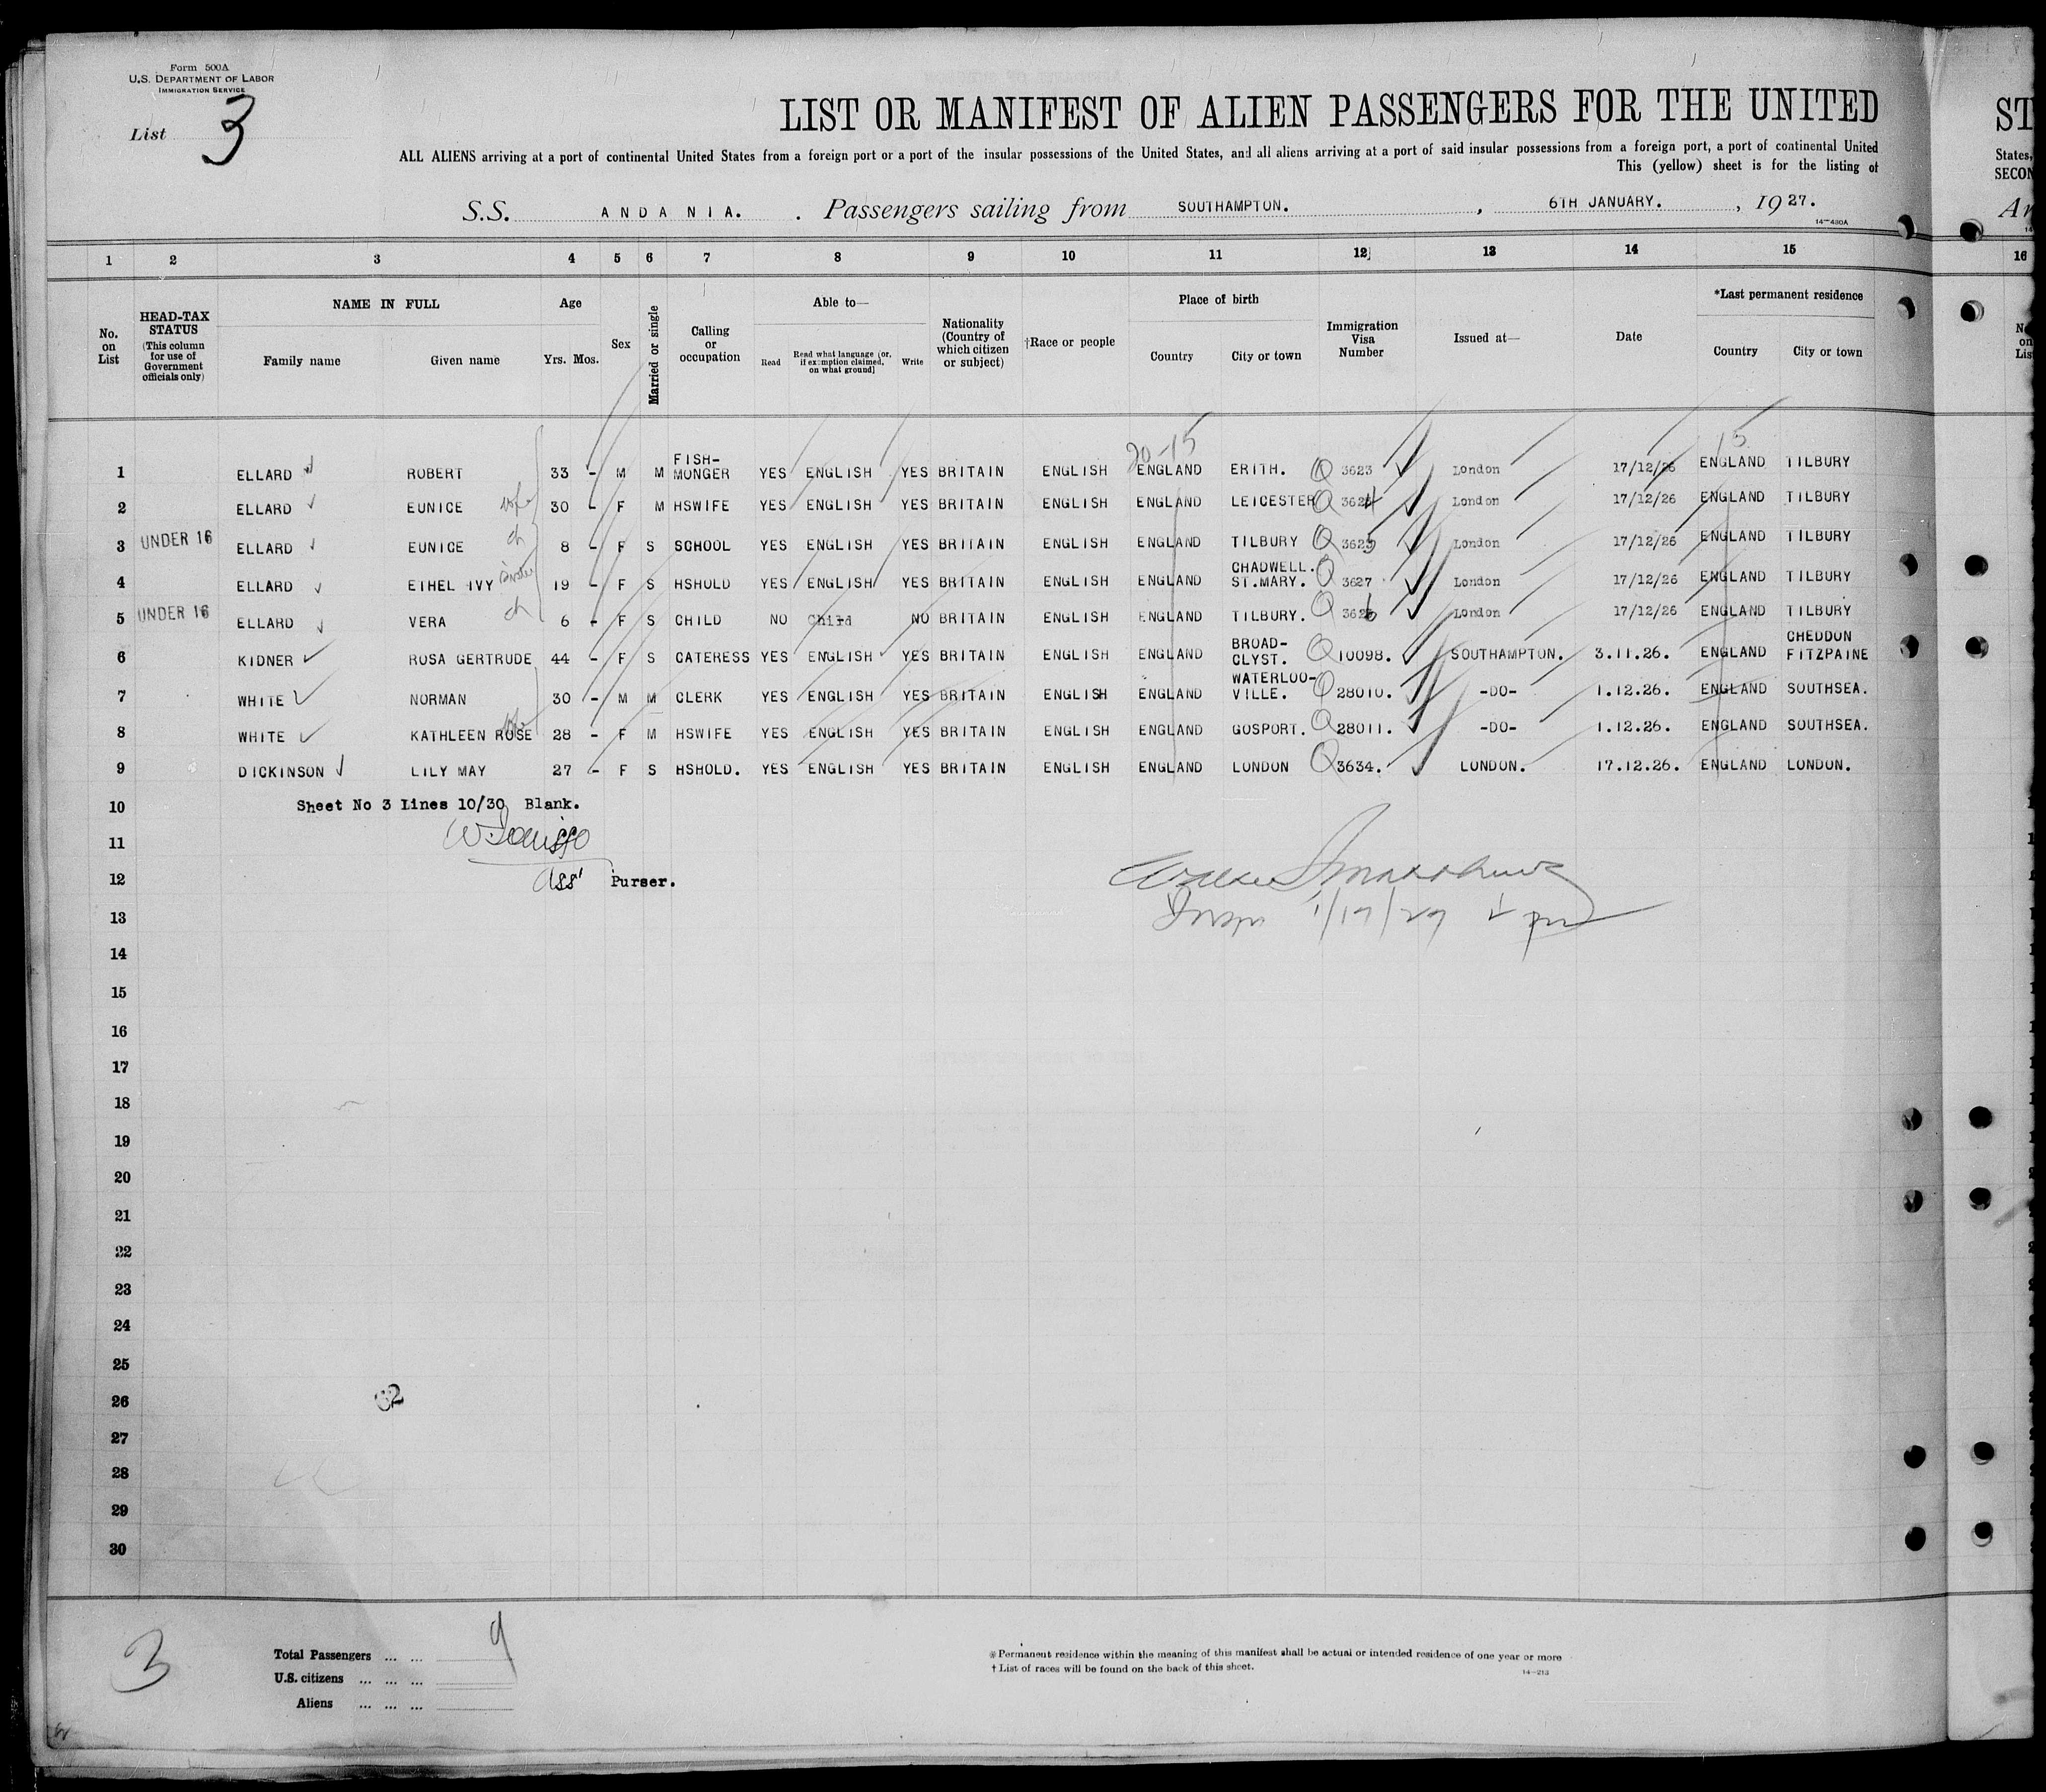 Form 500A
U.S. DEPARTMENT OF LABOR
IMMIGRATION SERVICE
List 3
LIST OR MANIFEST OF ALIEN PASSENGERS FOR THE UNITED
ST
ALL ALIENS arriving at a port of continental United States from a foreign port or a port of the insular possessions of the United States, and all aliens arriving at a port of said insular possessions from a foreign port, a port of continental United
States,
This (yellow) sheet is for the listing of
SECON
S.S. ANDANIA. . Passengers sailing from SOUTHAMPTON. , 6TH JANUARY. , 1927.
Ar
14—430A
1 2 3 4 5 6 7 8 9 10 11 12 13 14 15 16
No. on List
HEAD-TAX STATUS (This column for use of Government officials only)
NAME IN FULL
Family name Given name
Age
Yrs. Mos.
Sex
Married or single
Calling or occupation
Able to—
Read Read what language (or, if exemption claimed, on what ground) Write
Nationality (Country of which citizen or subject)
†Race or people
Place of birth
Country City or town
Immigration Visa Number
Issued at—
Date
*Last permanent residence
Country City or town
20-15 15
1 ELLARD ROBERT 33 - M M FISH-MONGER YES ENGLISH YES BRITAIN ENGLISH ENGLAND ERITH. Q 3623 London 17/12/26 ENGLAND TILBURY
2 ELLARD EUNICE wife 30 - F M HSWIFE YES ENGLISH YES BRITAIN ENGLISH ENGLAND LEICESTER Q 3624 London 17/12/26 ENGLAND TILBURY
3 UNDER 16 ELLARD EUNICE ch 8 - F S SCHOOL YES ENGLISH YES BRITAIN ENGLISH ENGLAND TILBURY Q 3625 London 17/12/26 ENGLAND TILBURY
4 ELLARD ETHEL IVY 19 - F S HSHOLD YES ENGLISH YES BRITAIN ENGLISH ENGLAND CHADWELL. ST.MARY. Q 3627 London 17/12/26 ENGLAND TILBURY
5 UNDER 16 ELLARD VERA ch 6 - F S CHILD NO Child NO BRITAIN ENGLISH ENGLAND TILBURY. Q 3626 London 17/12/26 ENGLAND TILBURY
6 KIDNER ROSA GERTRUDE 44 - F S CATERESS YES ENGLISH YES BRITAIN ENGLISH ENGLAND BROAD-CLYST. Q 10098. SOUTHAMPTON. 3.11.26. ENGLAND CHEDDON FITZPAINE
7 WHITE NORMAN 30 - M M CLERK YES ENGLISH YES BRITAIN ENGLISH ENGLAND WATERLOO-VILLE. Q 28010. -DO- 1.12.26. ENGLAND SOUTHSEA.
8 WHITE KATHLEEN ROSE wife 28 - F M HSWIFE YES ENGLISH YES BRITAIN ENGLISH ENGLAND GOSPORT. Q 28011. -DO- 1.12.26. ENGLAND SOUTHSEA.
9 DICKINSON LILY MAY 27 - F S HSHOLD. YES ENGLISH YES BRITAIN ENGLISH ENGLAND LONDON Q 3634. LONDON. 17.12.26. ENGLAND LONDON.
10 Sheet No 3 Lines 10/30 Blank.
11
12 Asst Purser.
13 Insp 1/17/27
14
15
16
17
18
19
20
21
22
23
24
25
26 62
27
28
29
30
3
Total Passengers ... ... 9
U.S. citizens ... ... ...
Aliens ... ... ...
* Permanent residence within the meaning of this manifest shall be actual or intended residence of one year or more
† List of races will be found on the back of this sheet.
14—213